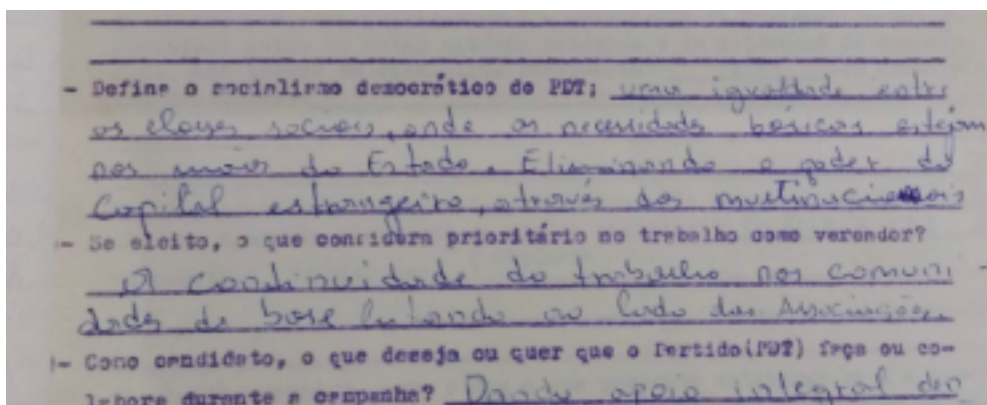 - Define o socialismo democrático do PDT; uma igualdade entre
as classes sociais, onde as necessidades básicas estejam
nas mãos do Estado. Eliminando o poder do
Capital estrangeiro, através das multinacionais
- Se eleito, o que considera prioritário no trabalho como vereador?
A continuidade do trabalho nas comuni
dades de base lutando ao lado das Associações.
- Como candidato, o que deseja ou quer que o Partido(PDT) faça ou co-
labore durante a campanha? Dando apoio integral